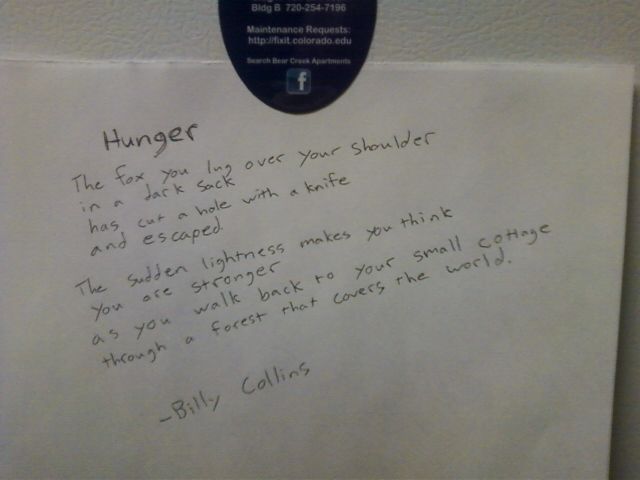 Bldg B 720-254-7196
Maintenance Requests:
http://fixit.colorado.edu
Search Bear Creek Apartments
f
Hunger
The fox you lug over your shoulder
in a dark sack
has cut a hole with a knife
and escaped.
The sudden lightness makes you think
you are stronger
as you walk back to your small cottage
through a forest that covers the world.
-Billy Collins